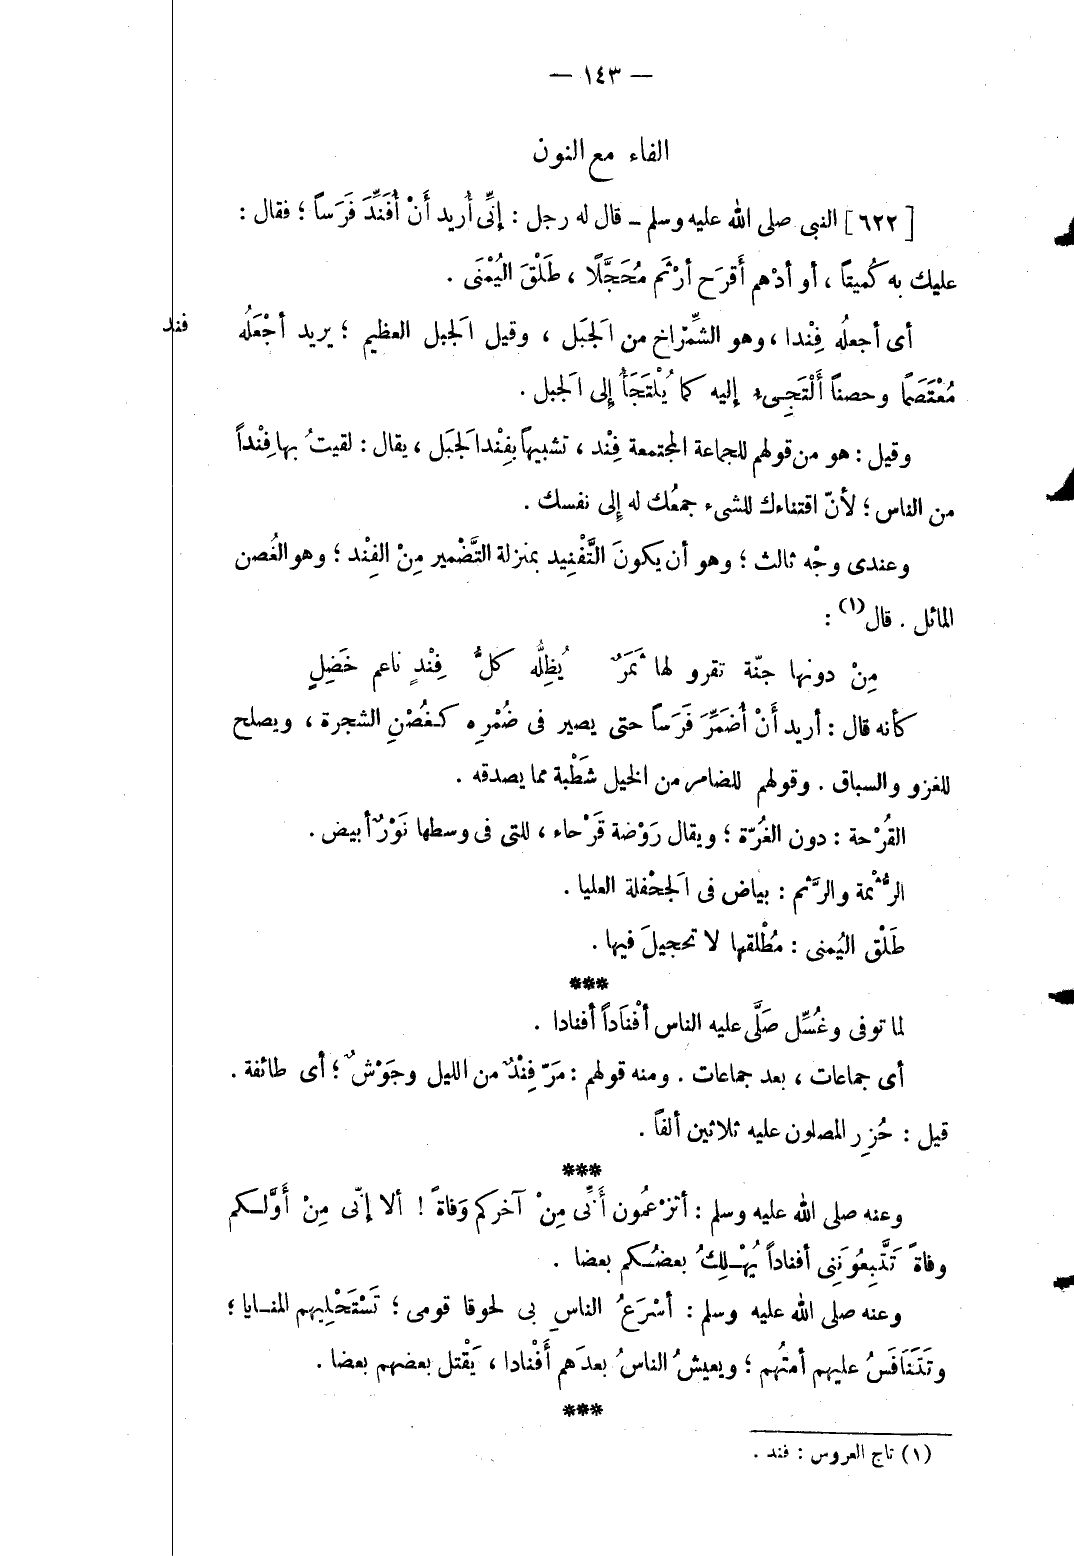 — ١٤٣ —
الفاء مع النون
[ ٦٢٢ ] النبى صلى الله عليه وسلم – قال له رجل : إنِّى أُريد أَنْ أُفَنِّدَ فَرَساً ؛ فقال :
عليك به كُميتاً ، أو أدْهم أَقرَح أرْثَم مُحَجَّلًا ، طَلْقَ اليُمْنَى .
أى أجعلُه فِنْدا ، وهو الشِّمْراخ من الَجبَل ، وقيل الَجبل العظيم ؛ يريد أجْعَلُه
فند
مُعْتَصَماً وحصناً أَلْتَجِىء إليه كما يُلْتَجَأُ إلى الَجبل .
وقيل : هو من قولهم للجماعة المجتمعة فِنْد ، تشبيهاً بفِنْد الَجبَل ، يقال : لقيتُ بها فِنْداً
من الناس ؛ لأنّ اقتناءك للشىء جمعُك له إلى نفسك .
وعندى وجْه ثالث ؛ وهو أن يكونَ التَّفْنِيد بمنزلة التَّضْمير مِنْ الفِنْد ؛ وهو الغُصن
المائل . قال(١) :
مِنْ دونها جنّة تقرو لها ثَمَرٌ يُظِلُّه كلُّ فِنْدٍ ناعم خَضَلِ
كأنه قال : أريد أَنْ أُضَمِّرَ فَرَساً حتى يصير فى ضُمْرِه كـغُصْنِ الشجرة ، ويصلح
للغزو والسباق . وقولهم للضامر من الخيل شَطْبة مما يصدقه .
القُرْحة : دون الغُرّة ؛ ويقال رَوْضة قَرْحاء ، للتى فى وسطها نَوْرٌ أبيض .
الرُّثْمة والرَّثم : بياض فى الَجحْفلة العليا .
طَلْق اليُمنى : مُطْلقها لا تحجيلَ فيها .
***
لما توفى وغُسِّل صَلَّى عليه الناس أفْنَاداً أفنادا .
أى جماعات ، بعد جماعات . ومنه قولهم : مَرّ فِنْدٌ من الليل وجَوْشٌ ؛ أى طائفة .
قيل : حُزِر المصلون عليه ثلاثين ألفاً .
***
وعنه صلى الله عليه وسلم : أتزْعمُون أَنِّى مِنْ آخركم وَفاةً ! ألا إنّى مِنْ أَوَّلـكم
وفاةً تَتَّبِعُونَنِى أفناداً يُهْـلِكُ بعضُـكم بعضا .
وعنه صلى الله عليه وسلم : أسْرَعُ الناسِ بى لحوقا قومى ؛ تَسْتَحْلِيهم المنـايا ؛
وتَتَنَافَسُ عليهم أمتُهم ؛ ويعيشُ الناسُ بعدَهم أَفْنادا ، يَقْتل بعضهم بعضا .
***
(١) تاج العروس : فند .